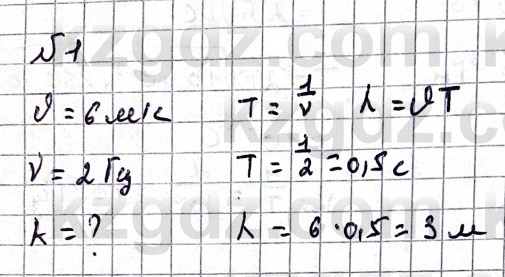 №1
𝜗 = 6 м/с T = 1/ν λ = 𝜗T
ν = 2 Гц T = 1/2 = 0,5 с
λ = ? λ = 6 · 0,5 = 3 м
kzgdz.com